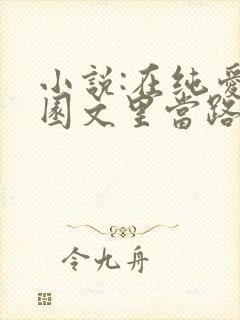 小說:在纯愛
园文里當路
令九舟